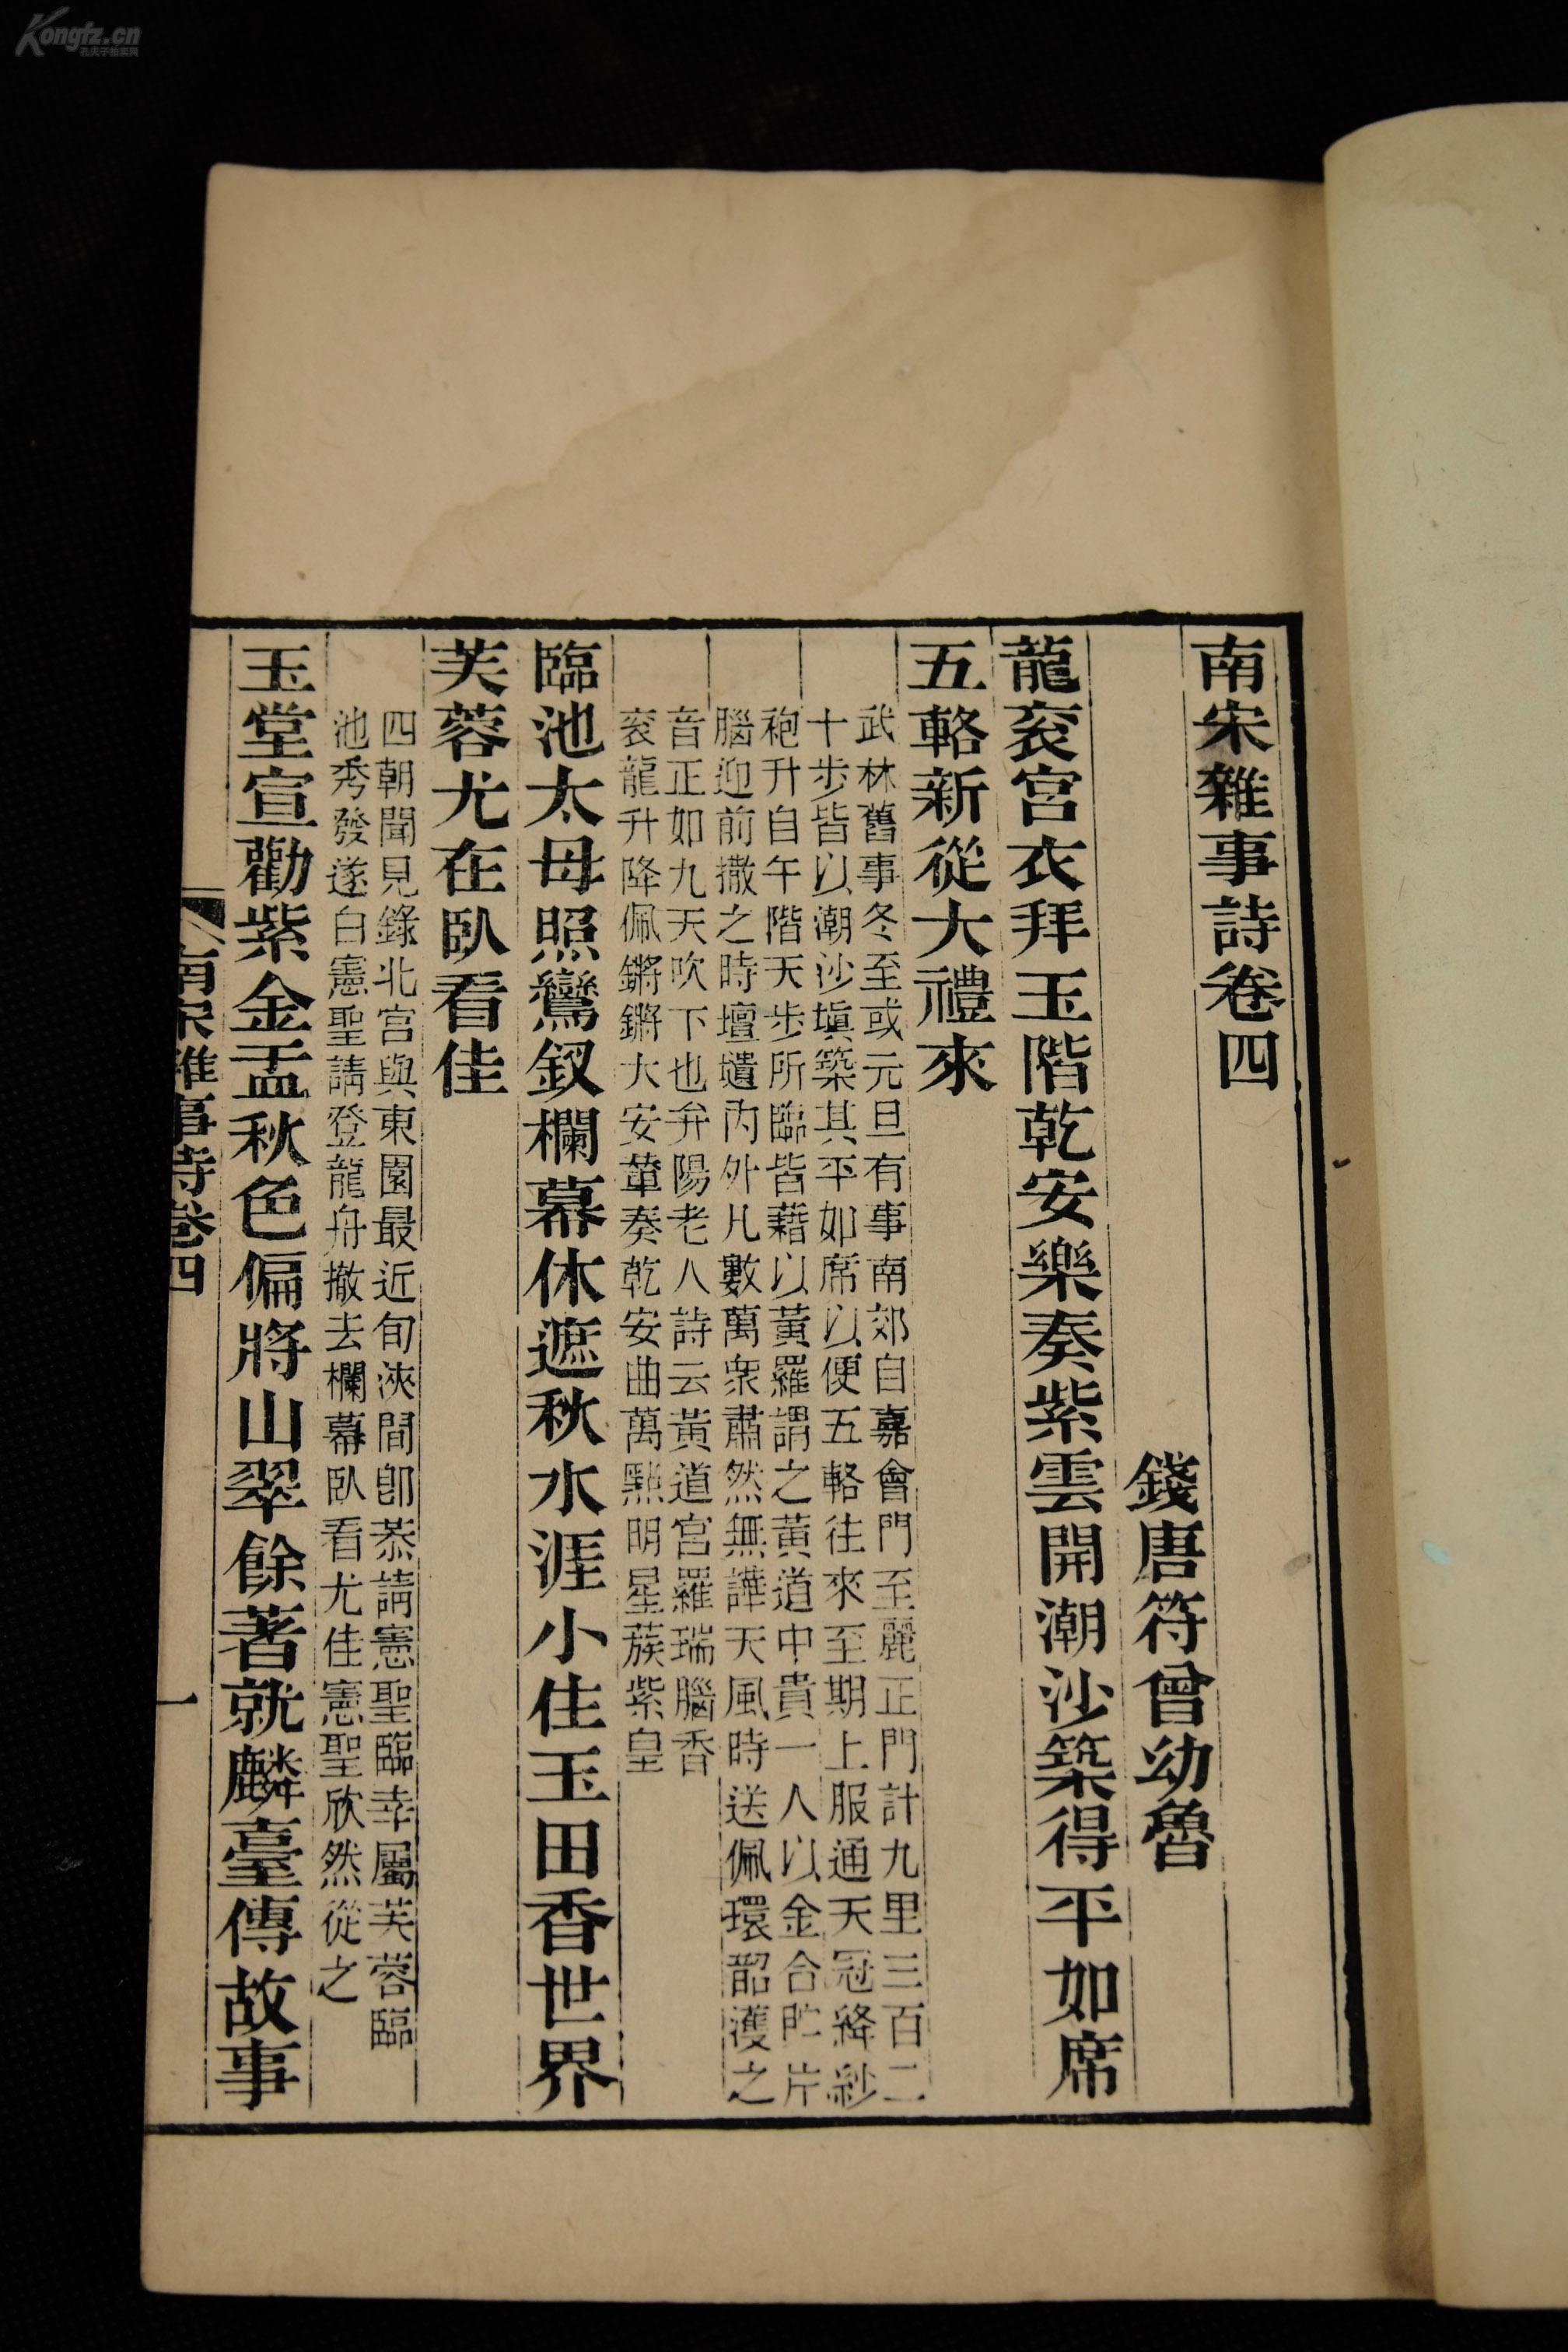 南宋雜事詩卷四
錢唐符曾幼魯
龍衮宮衣拜玉階乾安樂奏紫雲開潮沙築得平如席
五輅新從大禮來
武林舊事冬至或元旦有事南郊自嘉會門至麗正門計九里三百二
十步皆以潮沙塡築其平如席以便五輅往來至期上服通天冠絳紗
袍升自午階天步所臨皆藉以黃羅謂之黃道中貴一人以金合貯片
腦迎前撒之時壇壝內外凡數萬衆肅然無譁天風時送佩環韶濩之
音正如九天吹下也弁陽老人詩云黃道宮羅瑞腦香
衮龍升降佩鏘鏘大安輦奏乾安曲萬點明星蔟紫皇
臨池太母照鸞釵欄幕休遮秋水涯小住玉田香世界
芙蓉尤在臥看佳
四朝聞見錄北宮與東園最近旬浹間卽恭請憲聖臨幸屬芙蓉臨
池秀發遂白憲聖請登龍舟撤去欄幕臥看尤佳憲聖欣然從之
玉堂宣勸紫金盂秋色偏將山翠餘著就麟臺傳故事
南宋雜事詩卷四
一
Kongfz.cn
孔夫子拍卖网